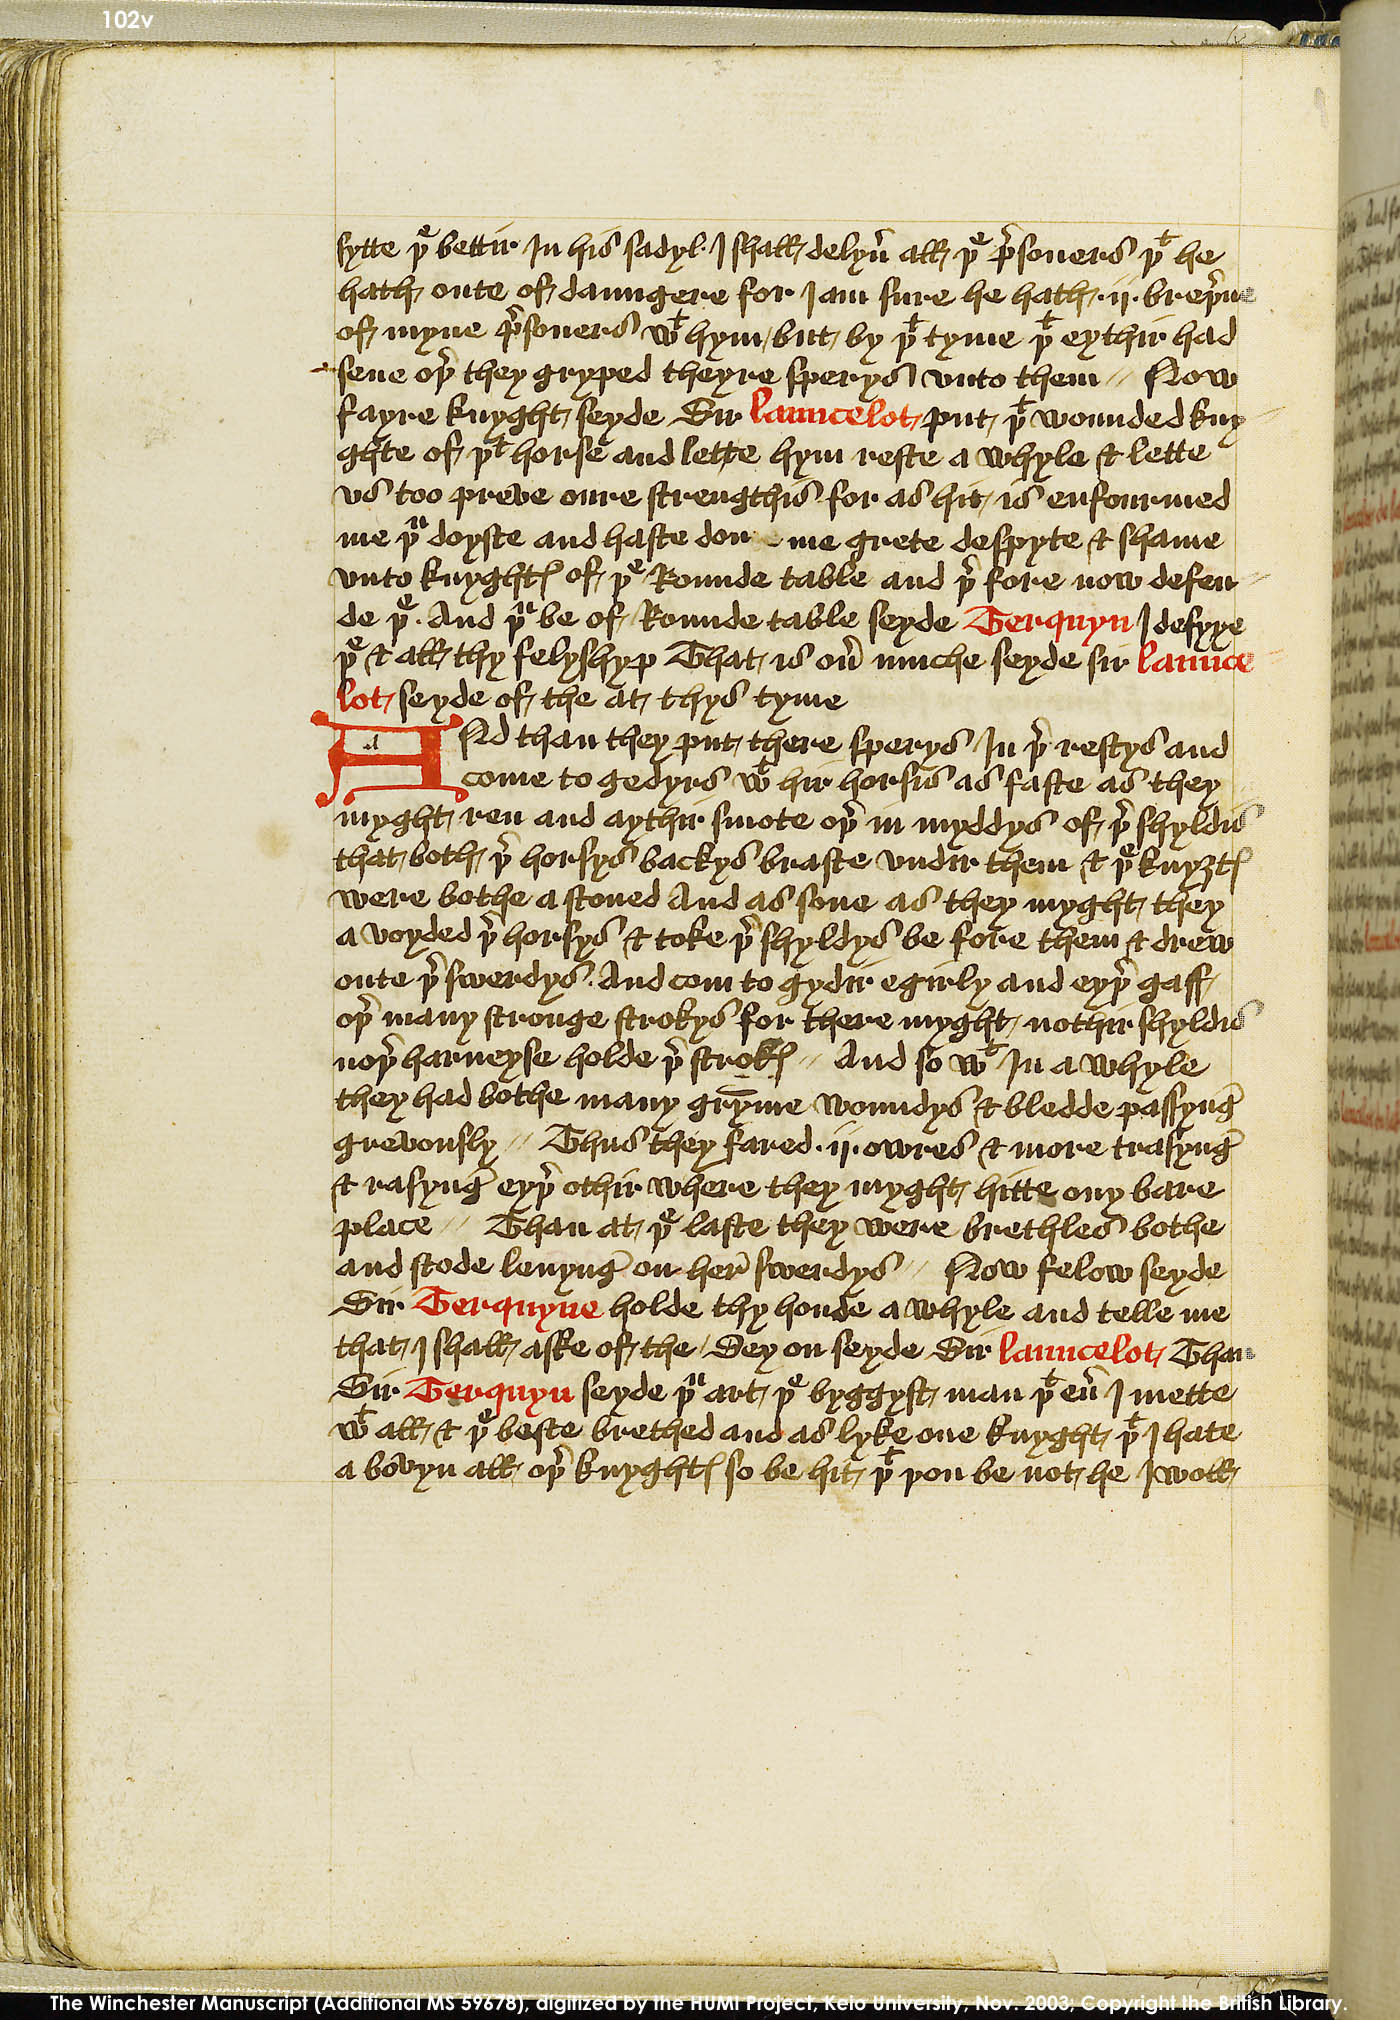 102v
sytte þe bettir In his sadyl · I shall delyũ all þe p̃soners þt he
hath oute of daungere for I am sure he hath · ij · breþ̃ne
of myne p̃soners wt hym / but by þt tyme þt eythir had
sene oþ̃ they gryped theyre sperys vnto them // Now
fayre knyght seyde Sir Launcelot put þt wounded kny
ghte of þt horse and lette hym reste a whyle & lette
vs too preve oure strengthis for as hit is enfourmed
me þu doyste and haste don me grete despyte & shame
vnto knyghtꝭ of þe Rounde table and þ̃ fore now defen
de þe · And þu be of Rounde table seyde Terquyn I defyye
þe & all thy felyshyp That is oũ muche seyde sir Launce
lot seyde of the at thys tyme
ANd than they put there sperys In þ̃ restys and
come to gedyrs wt hir horsis as faste as they
myght ren and aythir smote oþ̃ in myddys of þ̃ shyldis
that both þ̃ horsys backys braste vndir them & þe knyȝtꝭ
were bothe a stoned And as sone as they myght they
a voyded þ̃ horsys & toke þ̃ shyldys be fore them & drew
oute þ̃ swerdys · And com to gydir egirly and eyþ̃ gaff
oþ̃ many stronge strokys for there myght nothir shyldis
noþ̃ harneyse holde þ̃ strokꝭ // And so wt In a whyle
they had bothe many gry̅me woundys & bledde passyng̃
grevously // Thus they fared · ij · owres & more trasyng̃
& rasyng̃ eyþ̃ othir where they myght hitte ony bare
place // Than at þe laste they were brethles bothe
and stode lenyng̃ on her̃ swerdys // Now felow seyde
Sir Terquyne holde thy honde a whyle and telle me
that I shall aske of the / Sey on seyde Sir Launcelot Than
Sir Terquyn seyde þu art þe byggyst man þt eũ I mette
wt all & þe beste brethed and as lyke one knyght þt I hate
a bovyn all oþ̃ knyghtꝭ so be hit þt þou be not he I woll
The Winchester Manuscript (Additional MS 59678), digitized by the HUMI Project, Keio University, Nov. 2003; Copyright the British Library.